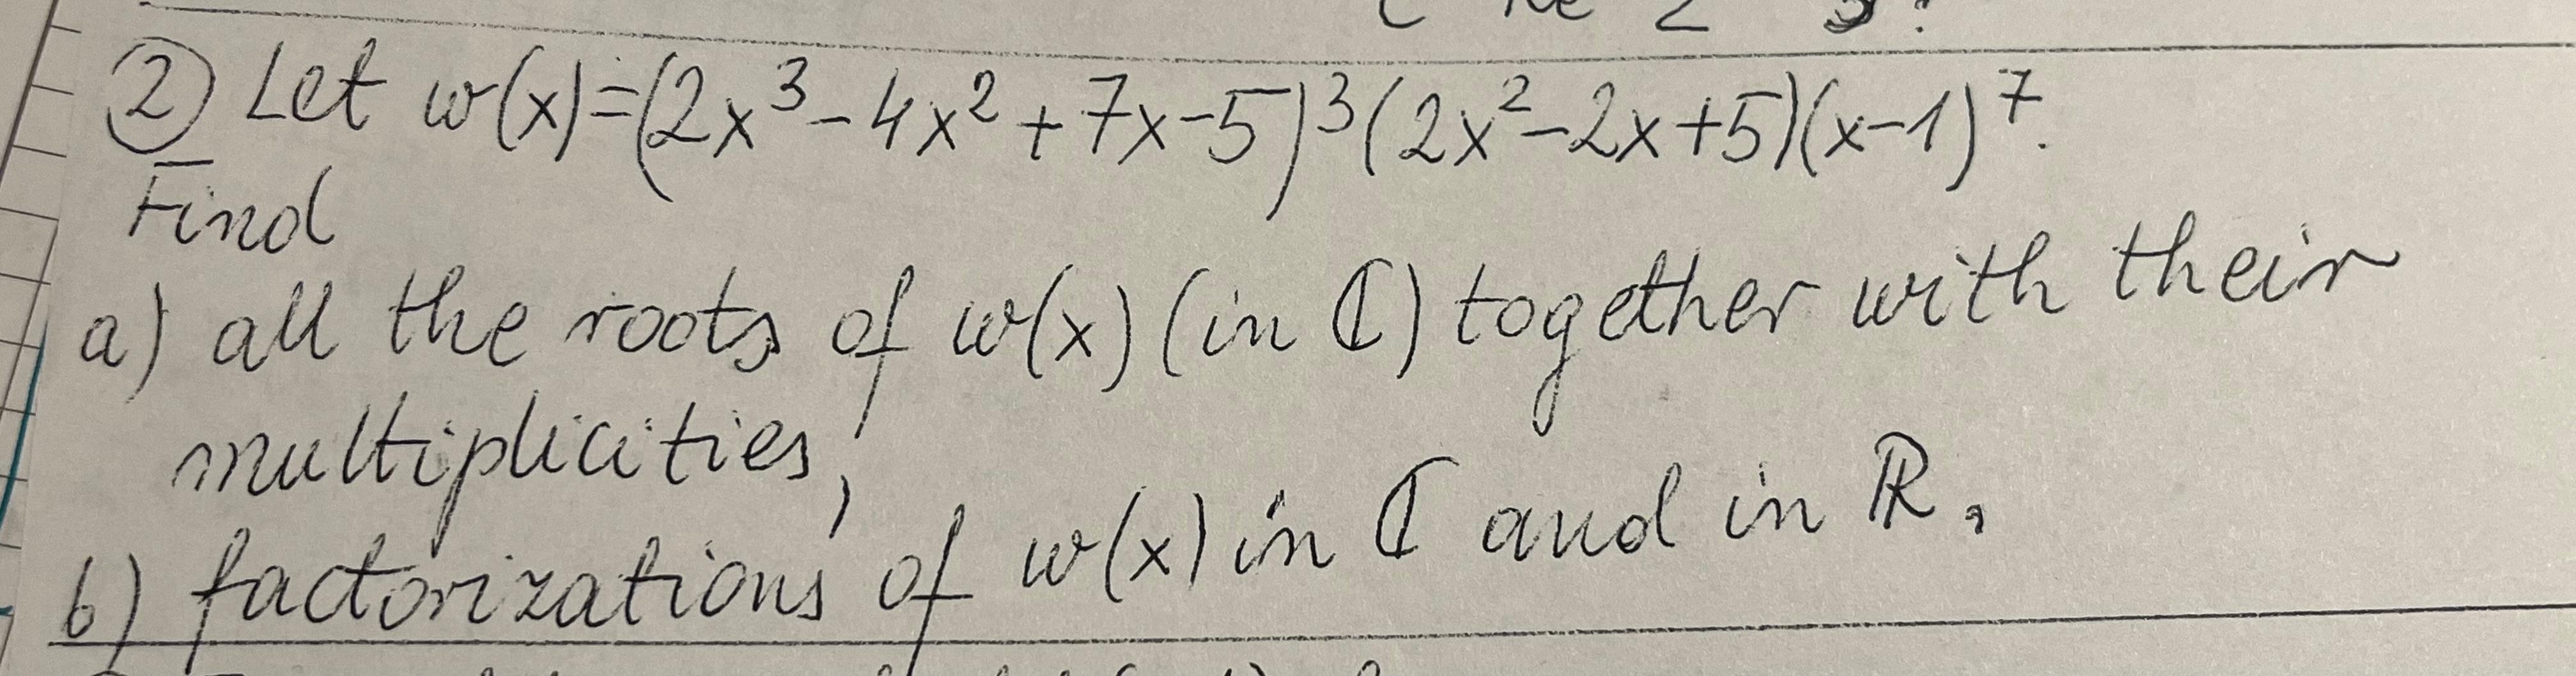 ② Let w(x)=(2x³-4x²+7x-5)³(2x²-2x+5)(x-1)⁷.
Find
a) all the roots of w(x) (in ℂ) together with their
multiplicities,
b) factorizations of w(x) in ℂ and in ℝ.